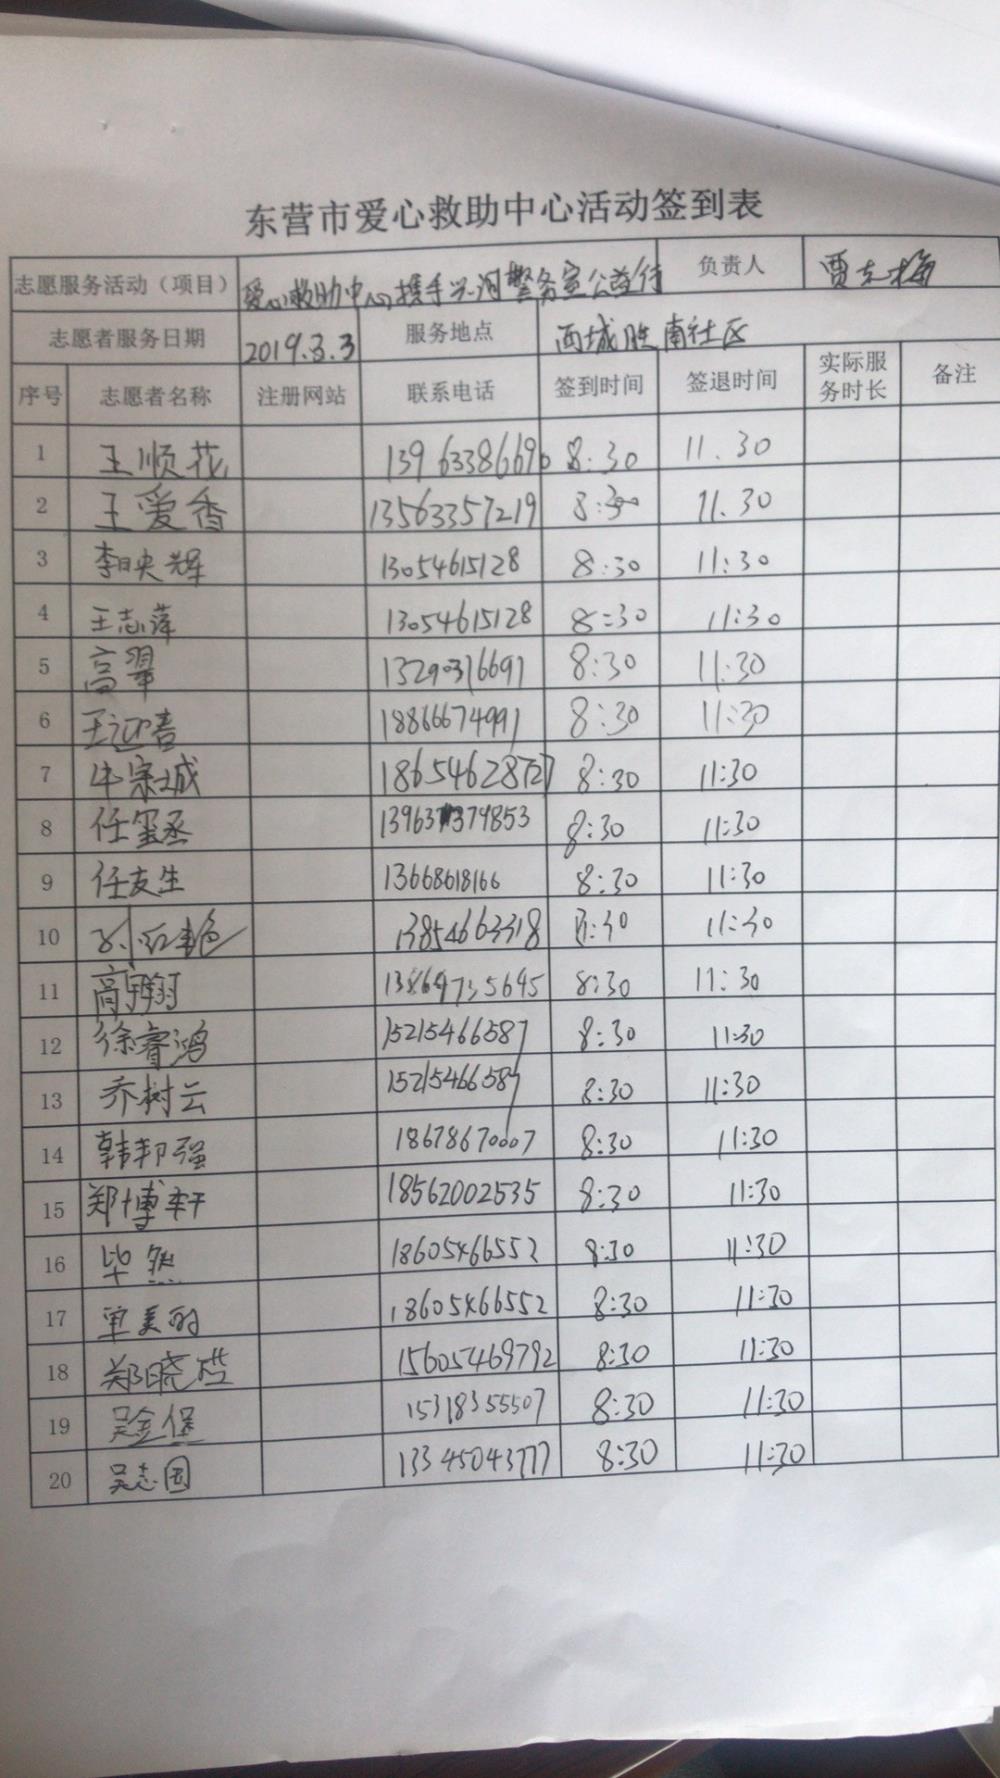 东营市爱心救助中心活动签到表
志愿服务活动（项目） 爱心救助中心携手兴河警务室公益行 负责人 贾冬梅
志愿者服务日期 2019.3.3 服务地点 西城胜南社区
序号 志愿者名称 注册网站 联系电话 签到时间 签退时间 实际服务时长 备注
1 王顺花 13963386690 8:30 11.30
2 王爱香 13563357219 8:30 11.30
3 李映辉 13054615128 8:30 11:30
4 王志萍 13054615128 8:30 11:30
5 高翠 13290316691 8:30 11:30
6 王迎春 18866674991 8:30 11:30
7 牛宗城 8:30 11:30
8 任玺丞 8:30 11:30
9 任友生 13668618166 8:30 11:30
10 孙红艳 13854663318 8:30 11:30
11 高宇翔 13864735645 8:30 11:30
12 徐睿鸿 15215466587 8:30 11:30
13 乔树云 15215466587 8:30 11:30
14 韩邦强 18678670007 8:30 11:30
15 郑博轩 18562002535 8:30 11:30
16 毕然 18605466552 8:30 11:30
17 单美 18605466552 8:30 11:30
18 郑晓 15605469792 8:30 11:30
19 吴金保 15318355507 8:30 11:30
20 吴志国 13345043777 8:30 11:30